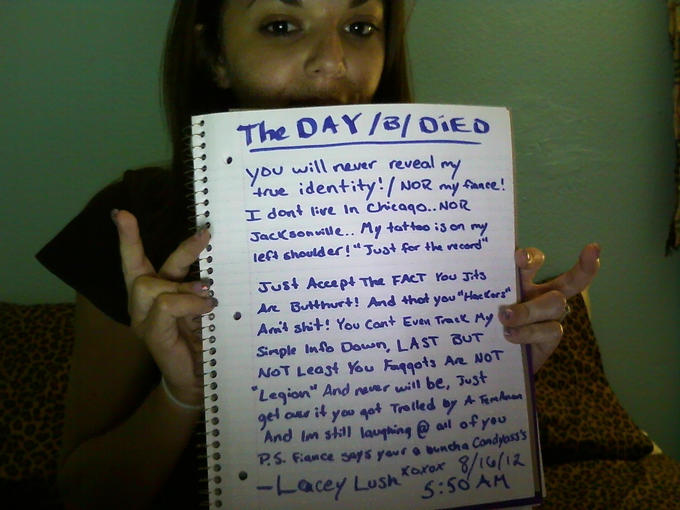 The DAY /B/ DiED
you will never reveal my
true identity!/ NOR my fiance!
I dont live In Chicago.. NOR
Jacksonville.. My tattoo is on my
left shoulder! "Just for the record"
Just Accept The FACT You Jits
Are Butthurt! And that you "Hackers"
Ain't shit! You Cant Even Track My
Simple Info Down, LAST BUT
NOT Least You Faggots Are NOT
"Legion" And never will be, Just
get over it you got Trolled by A
And Im still laughing @ all of you
P.S. Fiance says your a buncha Candyass's
xoxox 8/16/12
-Lacey Lush 5:50 AM